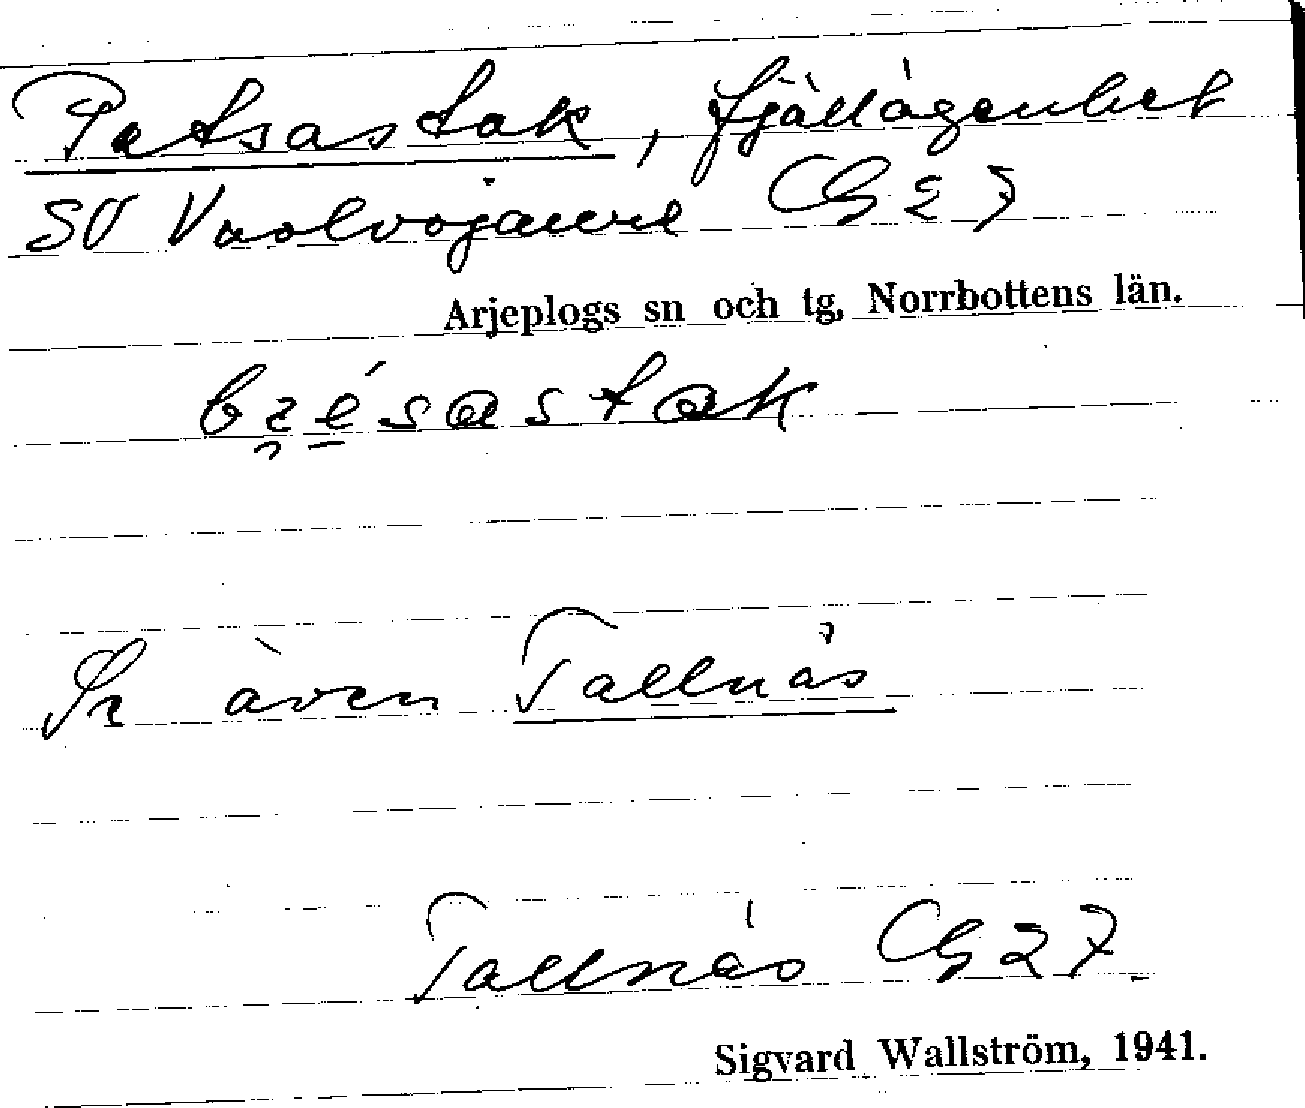 Petsastak, fjällägenhet
SV Vuolvojaure Cg 27
Arjeplogs sn och tg, Norrbottens län.
Se även Tallnäs
Tallnäs Cg 27.
Sigvard Wallström, 1941.